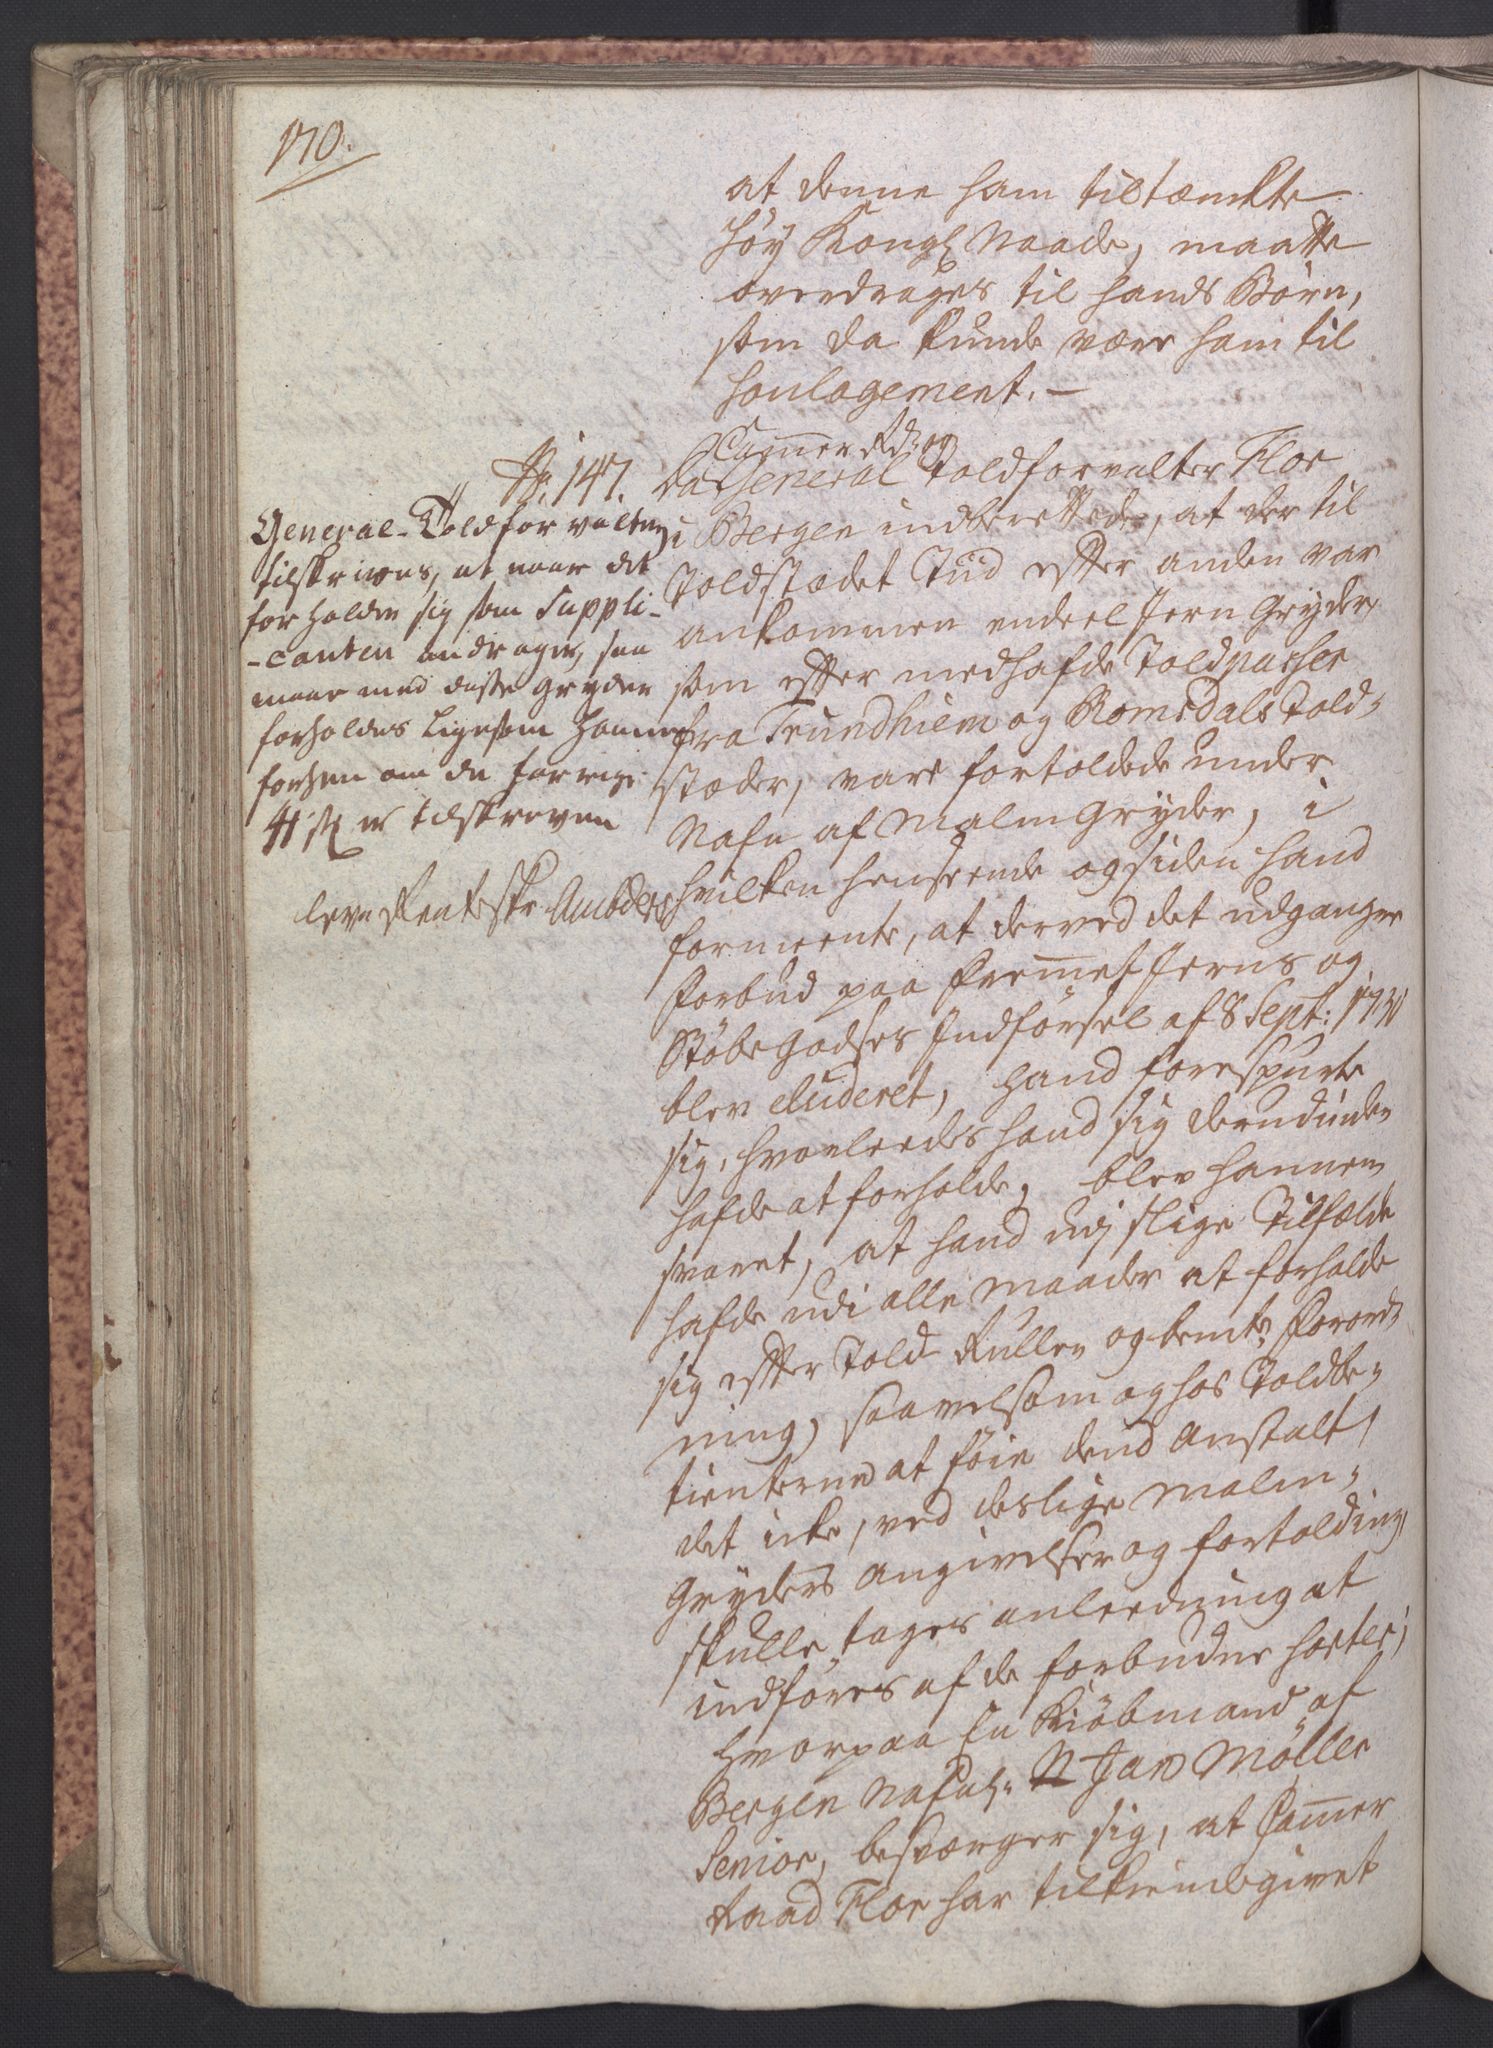 170.
at denne ham tiltænckte
Høy Kongl Naade, maatte
overdrages til hands Børn,
som da kunde være ham til
Soulagement.—
No. 147.
General-Toldforvalteren
tilskrives, at naar det
forholder sig som Suppli-
-canten andrager, saa
maae med disse Gryder
forholdes ligesom Hannem
forhen om de forrige
41 st er tilskreven
lev: Renteskr. Ambders
Cammer Rd: og
Da General Toldforvalter Floe
i Bergen indberettede, at der til
Toldstædet Tiid efter anden var
ankommen endeel Jern Gryder,
som efter medhafde Toldpasser
fra Trundhiem og Romsdals Told-
stæder, vare fortoldede under
Nafn af Malm Gryder, i
hvilken henseende og siden hand
formeente, at derved det udgangne
Forbud paa fremmet Jerns og
Støbe Godses Indførsel af 8 Sept: 1730
blev eluderet, hand forespurte
sig, hvorleedes hand sig derudinden
hafde at forholde, blev hannem
svaret, at hand udj slige Tilfælde
hafde udi alle Maader at forholde
sig efter Told Rullen og bemte Forord-
ning, saavelsom og hos Toldbe-
tienterne at føie dend Anstalt,
det icke, ved deslige Malm-
Gryders Angivelser og Fortolding,
skulle tages anleedning at
indføres af de forbudne sorter;
hvorpaa En Kiøbmand af
Bergen Nafnl: Jan Møller
Senior, besværger sig, at Cammer
Raad Floe har tilkiendegivet